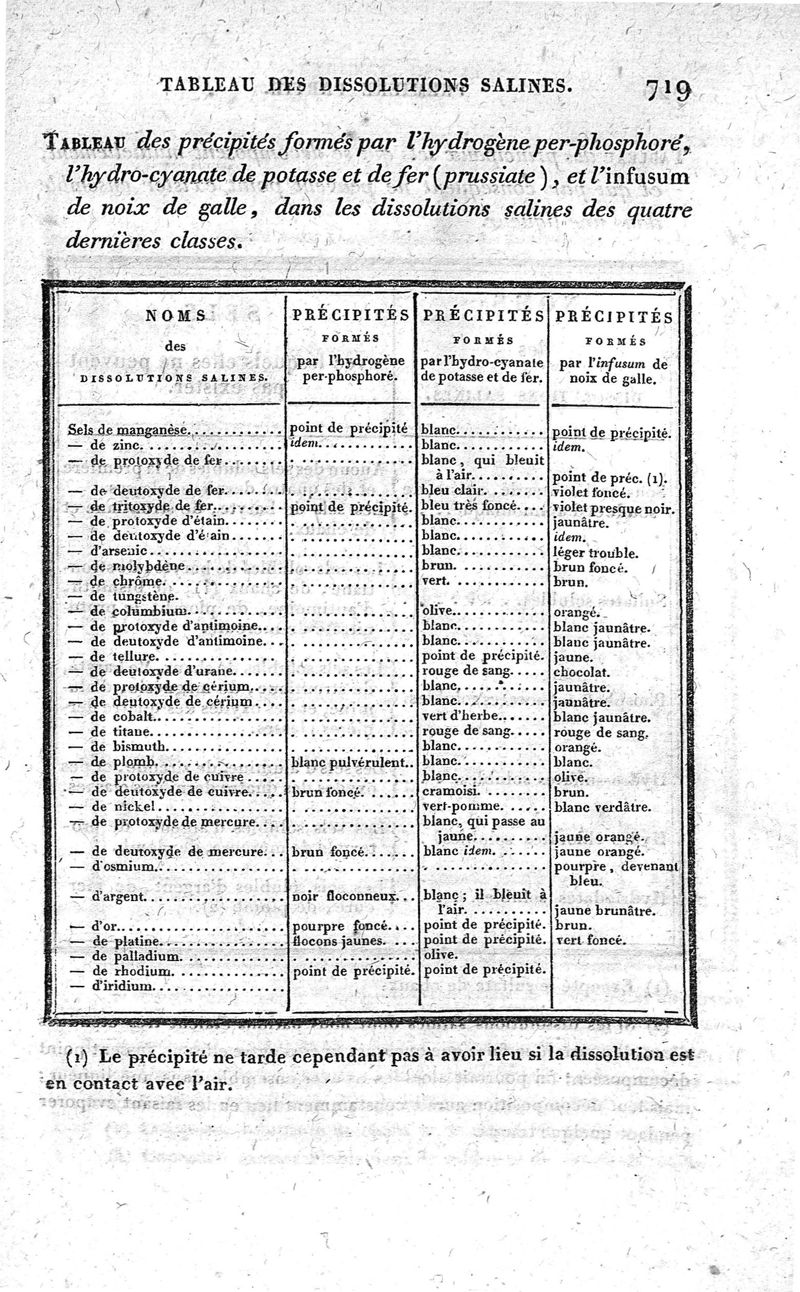 TABLEAU DES DISSOLUTIONS SALINES. 719
TABLEAU des précipités formés par l'hydrogène per-phosphoré,
l'hydro-cyanate de potasse et de fer (prussiate), et l'infusum
de noix de galle, dans les dissolutions salines des quatre
dernières classes.
NOMS
des
DISSOLUTIONS SALINES.
PRÉCIPITÉS
FORMÉS
par l'hydrogène
per-phosphoré.
PRÉCIPITÉS
FORMÉS
par l'hydro-cyanate
de potasse et de fer.
PRÉCIPITÉS
FORMÉS
par l'infusum de
noix de galle.
Sels de manganèse. point de précipité blanc. point de précipité.
— de zinc. idem. blanc. idem.
— de protoxyde de fer blanc, qui bleuit
à l'air. point de préc. (1).
— de deutoxyde de fer. bleu clair. violet foncé.
— de tritoxyde de fer. point de précipité. bleu très foncé. violet presque noir.
— de protoxyde d'étain. blanc. jaunâtre.
— de deutoxyde d'étain blanc. idem.
— d'arsenic blanc. léger trouble.
— de molybdène brun. brun foncé.
— de chrôme. vert. brun.
— de tungstène.
— de columbium. olive. orangé.
— de protoxyde d'antimoine. blanc. blanc jaunâtre.
— de deutoxyde d'antimoine. blanc. blanc jaunâtre.
— de tellure. point de précipité. jaune.
— de deutoxyde d'urane. rouge de sang. chocolat.
— de protoxyde de cérium. blanc. jaunâtre.
— de deutoxyde de cérium blanc. jaunâtre.
— de cobalt. vert d'herbe. blanc jaunâtre.
— de titane. rouge de sang. rouge de sang.
— de bismuth. blanc. orangé.
— de plomb. blanc pulvérulent. blanc. blanc.
— de protoxyde de cuivre blanc. olive.
— de deutoxyde de cuivre. brun foncé. cramoisi. brun.
— de nickel vert-pomme. blanc verdâtre.
— de protoxyde de mercure. blanc, qui passe au
jaune. jaune orangé.
— de deutoxyde de mercure. brun foncé. blanc idem. jaune orangé.
— d'osmium. pourpre, devenant
bleu.
— d'argent. noir floconneux. blanc; il bleuit à
l'air. jaune brunâtre.
— d'or. pourpre foncé. point de précipité. brun.
— de platine. flocons jaunes. point de précipité. vert foncé.
— de palladium. olive.
— de rhodium. point de précipité. point de précipité.
— d'iridium.
(1) Le précipité ne tarde cependant pas à avoir lieu si la dissolution est
en contact avec l'air.